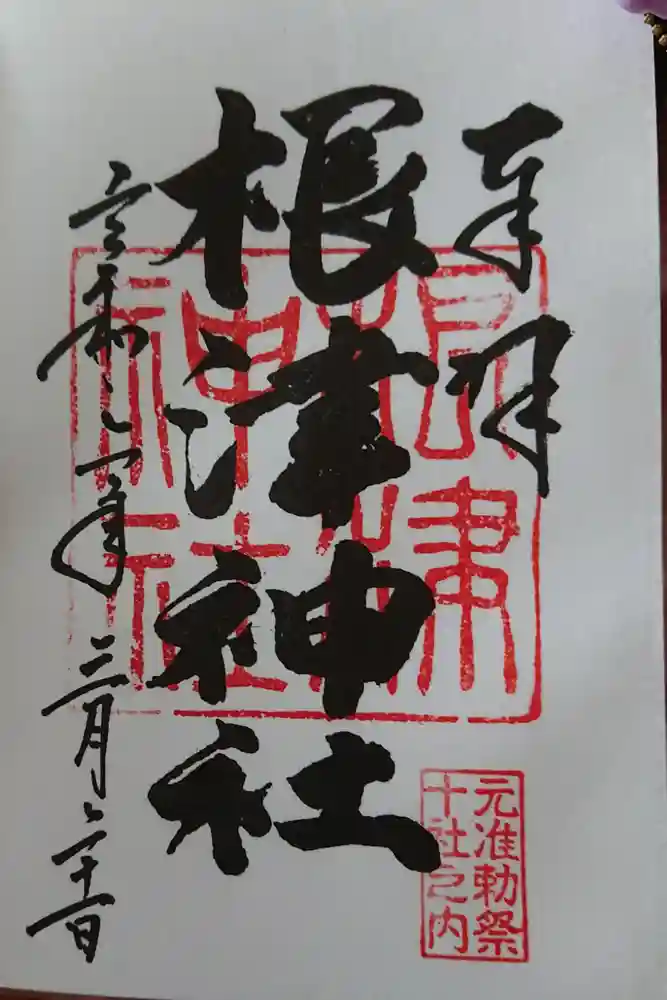 奉拝
根津神社
令和三年三月二十一日
根津
神社
元准勅祭
十社之内